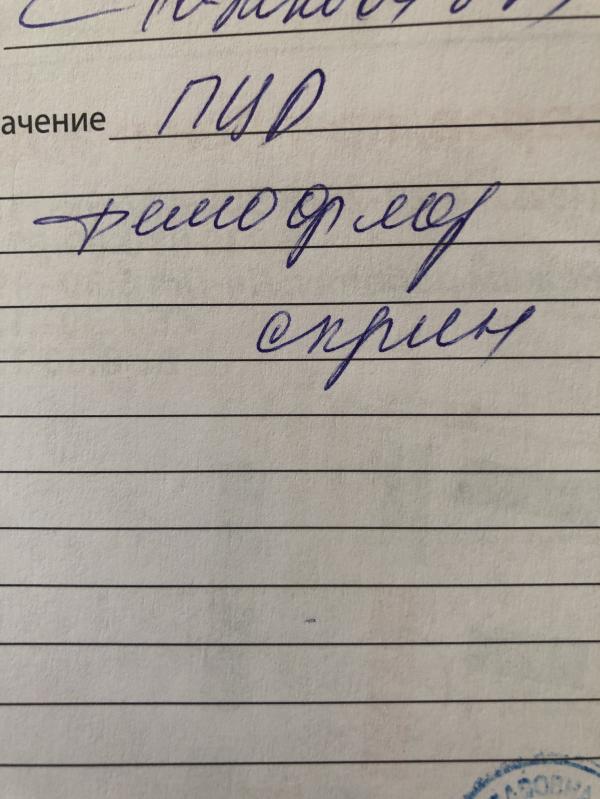 ачение ПЦР
фемофлор
скрин